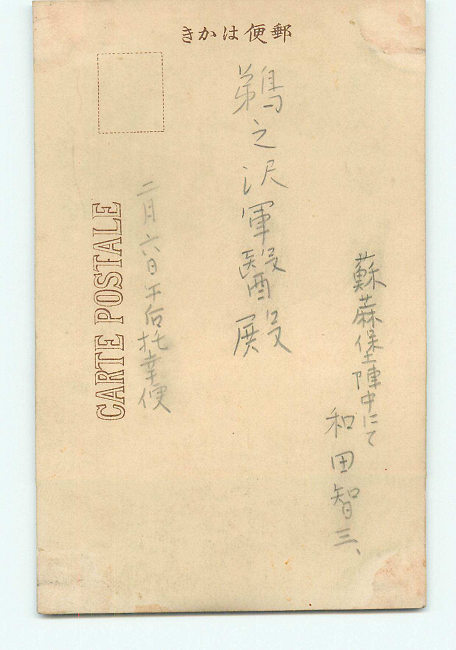 郵便はかき
蘇麻堡陣中にて
和田智三、
鵜之沢軍醫殿
二月六日午后托幸便
CARTE POSTALE